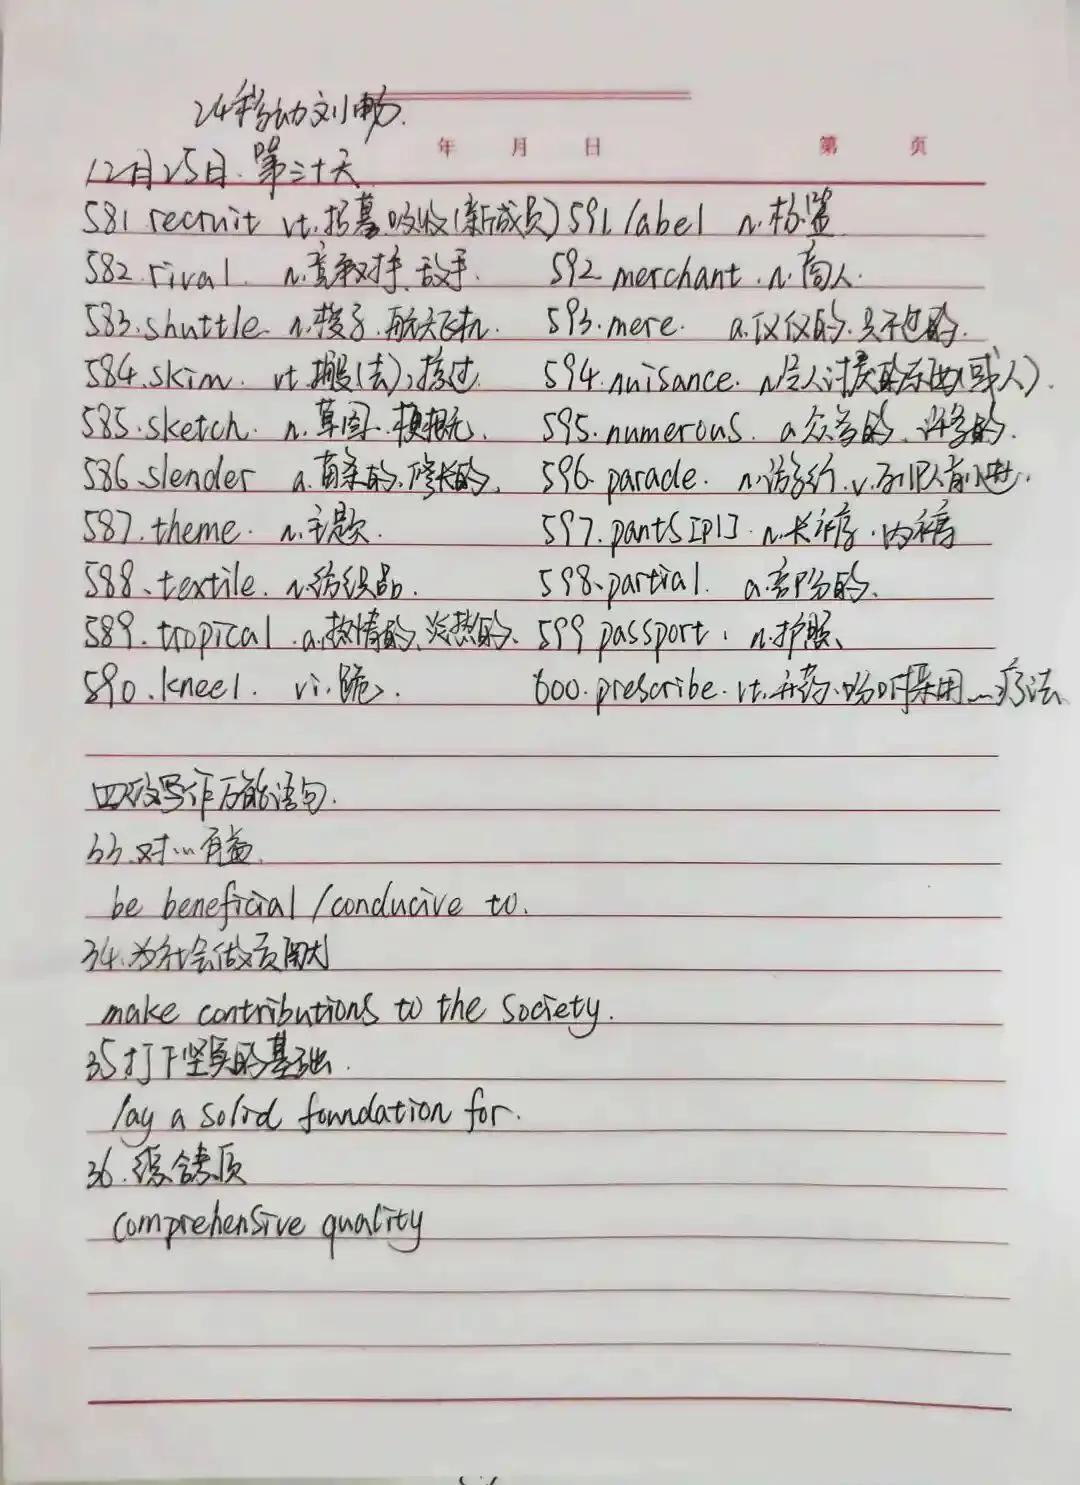 24移动刘畅.
年 月 日 第 页
12月25日.第三十天
581 recruit vt.招募 吸收(新成员) 591 label n.标签
582.rival. n.竞争对手.敌手. 592 merchant.n.商人.
583.shuttle n.梭子.航天飞机. 593.mere. a.仅仅的.只不过的.
584.skim. vt.撇(去),掠过. 594.nuisance. n.令人讨厌的东西(或人).
585.sketch. n.草图.梗概. 595.numerous. a.众多的.许多的.
586.slender a.苗条的.修长的. 596.parade. n.游行.v.列队前进.
587.theme. n.主题. 597.pants[pl] n.长裤.内裤
588.textile. n.纺织品. 598.partial. a.部分的.
589.tropical.a.热情的、炎热的、 599 passport. n.护照、
590.kneel. vi.跪. 600.prescribe.vt.开药.吩咐采用…疗法
四级写作万能语句.
33.对…有益.
be beneficial/conducive to.
34.为社会做贡献
make contributions to the society.
35打下坚实的基础.
lay a solid foundation for.
36.综合素质
comprehensive quality